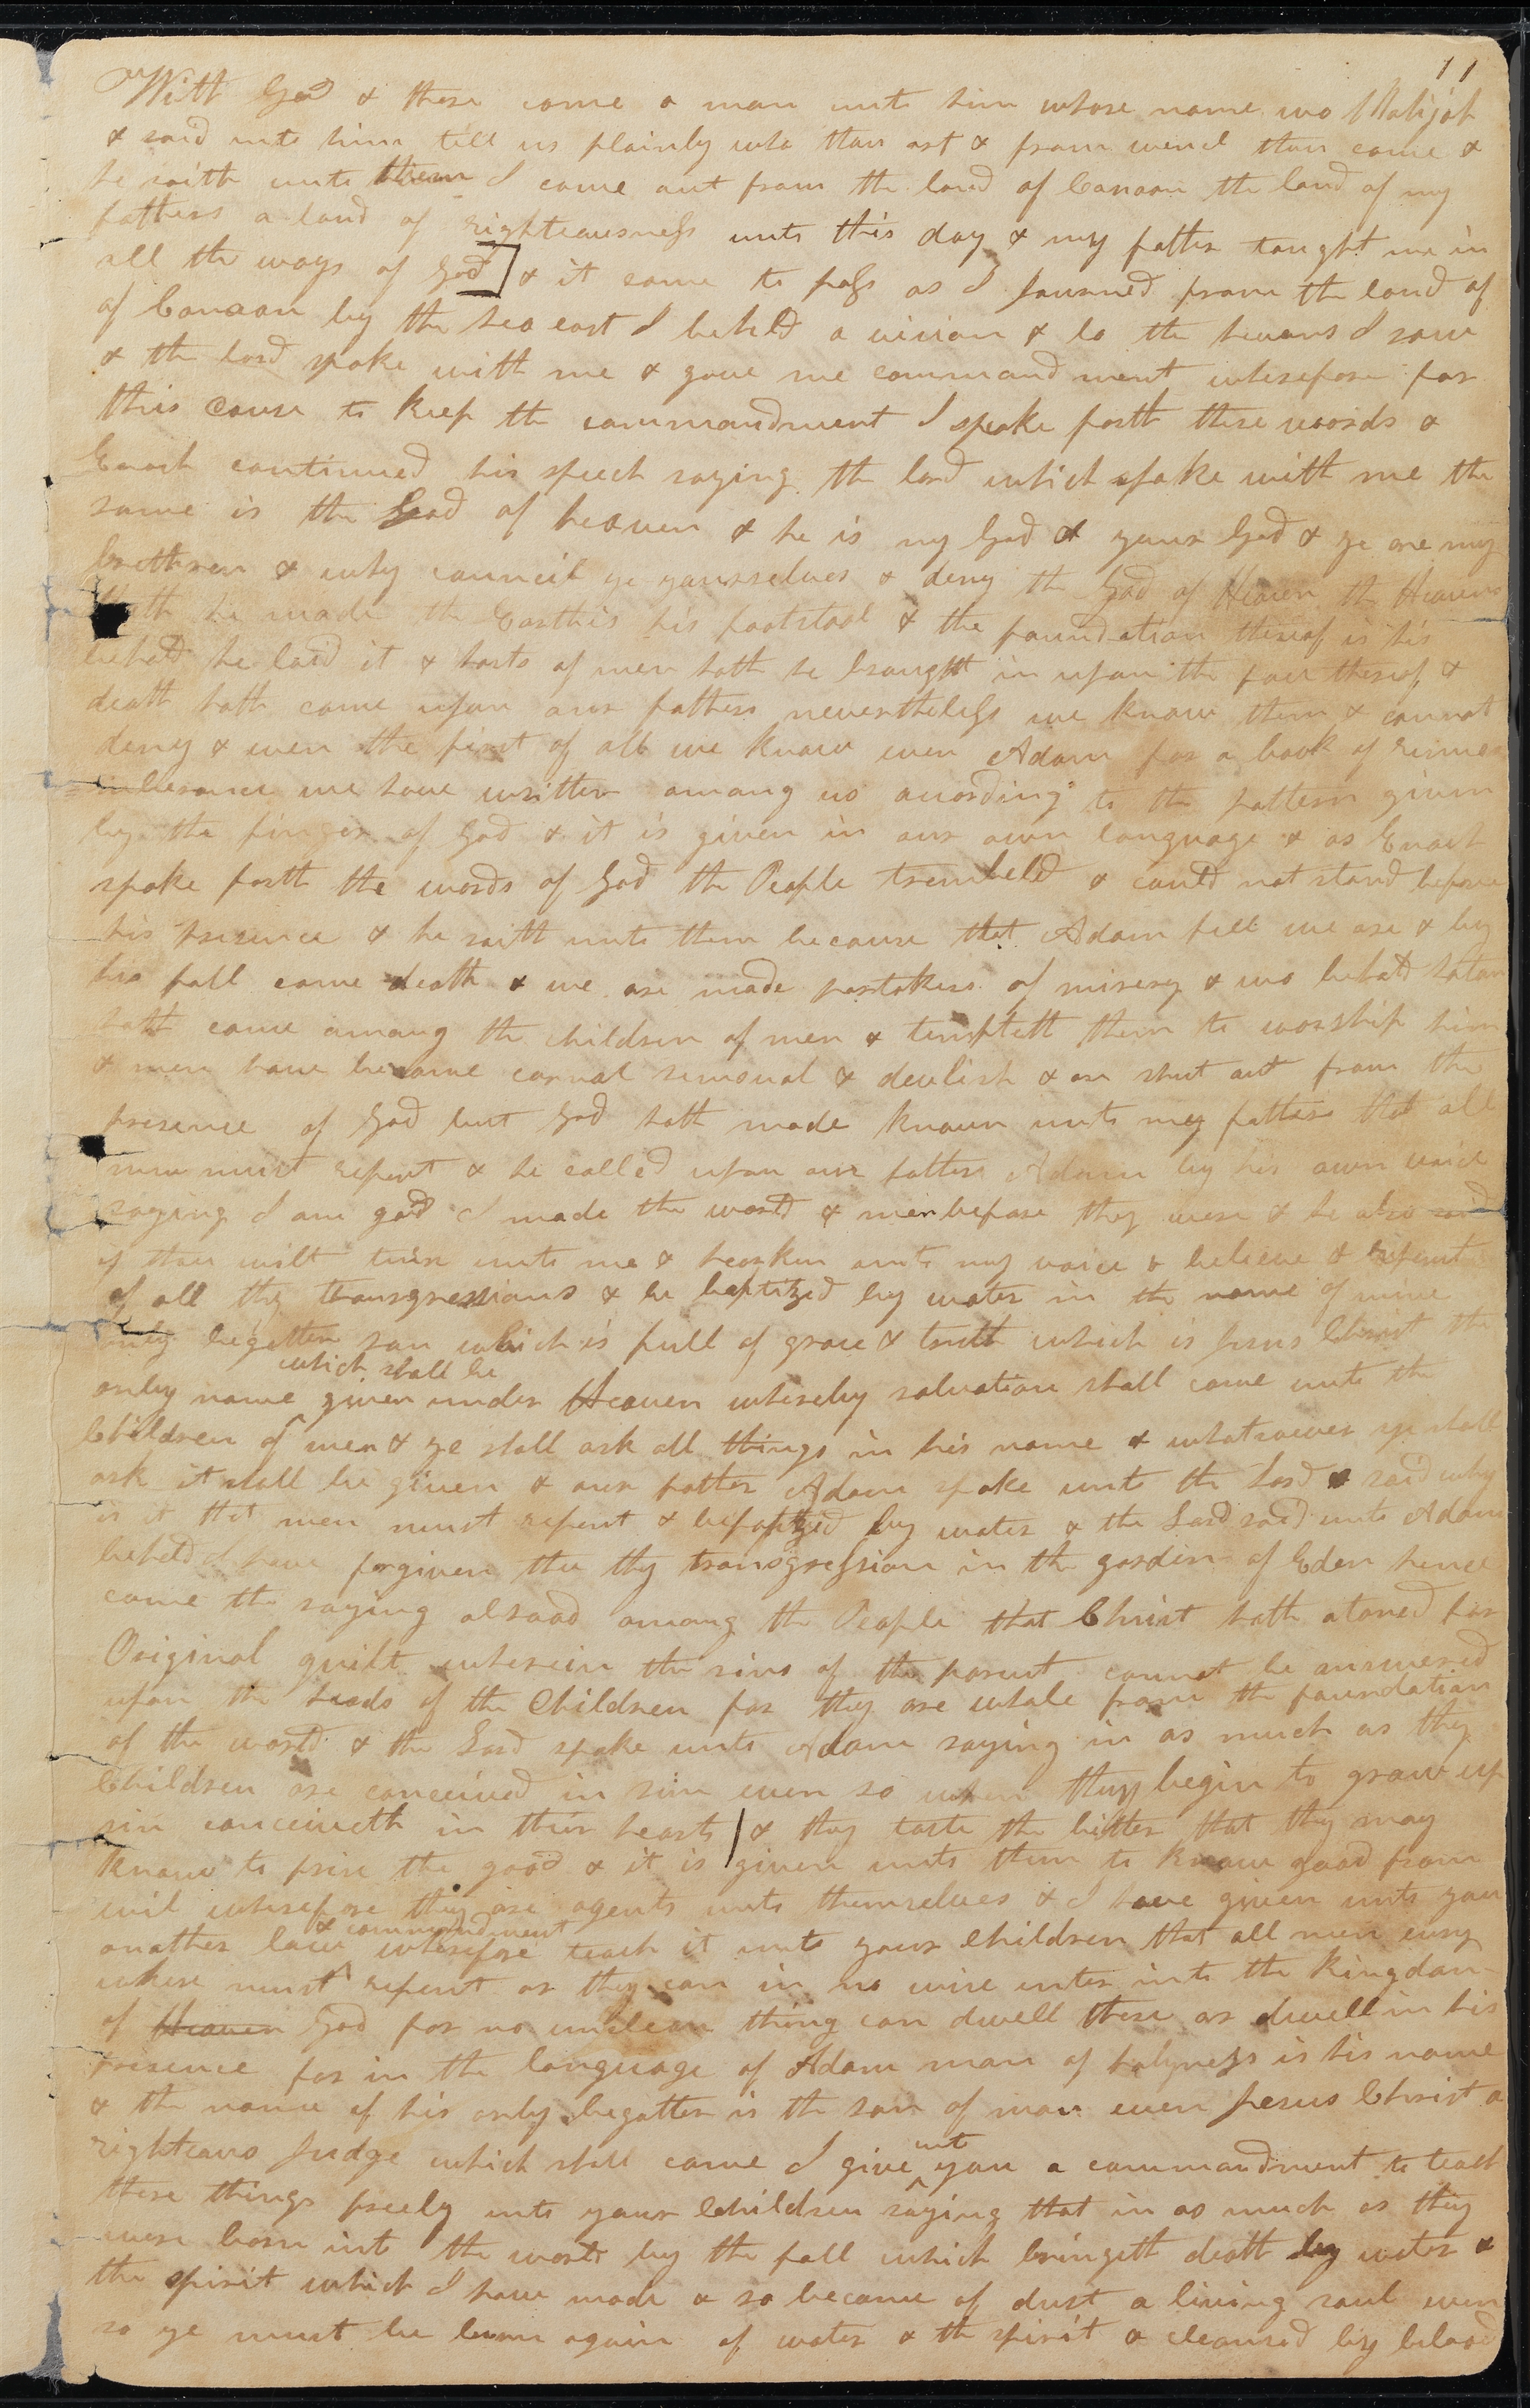 11
With God & there came a man unto him whose name was Mahijah
& said unto him tell us plainly who thou art & from whence thou came &
he saith unto them I came out from the land of Canaan the land of my
fathers a land of righteousness unto this day & my father taught me in
all the ways of God] & it came to pass as I journed from the land of
of Canaan by the sea east I beheld a vision & lo the hevans I saw
& the lord spoke with me & gave me commandment wherefore for
this cause to keep the commandment I speake forth these words &
Enoch continued his speech saying the lord which spake with me the
same is the God of heaven & he is my God & your God & ye are my
brethren & why council ye yourselves & deny the God of Heaven the Heavens
hath he made the Earth is his footstool & the foundation thereof is his
behold he laid it & hosts of men hath he brought in upon the face thereof &
death hath come upon our fathers nevertheless we know them & cannot
deny & even the first of all we know even Adam for a book of rimem
emberance we have written among us according to the pattern given
by the finger of God & it is given in our own language & as Enoch
spoke forth the words of God the People trembeled & could not stand before
his presence & he saith unto them because that Adam fell we are & by
his fall came death & we are made partakers of misery & wo behold satan
hath come among the children of men & tempteth them to worship him
& men have become carnal sensual & devlish & are shut out from the
presence of God but God hath made known unto my fathers that all
men must repent & he called upon our father Adam by his own voice
saying I am god I made the world & men before they were & he also said
if thou wilt turn unto me & hearken unto my voice & believe & repent
of all thy transgressions & be baptized by water in the name of mine
only begotten son which is full of grace & truth which is Jesus Christ the
which shall be
only name given under Heaven whereby salvation shall come unto the
Children of men & ye shall ask all things in his name & whatsoever ye shall
ask it shall be given & our father Adam spoke unto the Lord & said why
is it that men must repent & be baptized by water & the Lord said unto Adam
behold I have forgiven thee thy transgression in the garden of Eden hence
came the saying abroad among the People that Christ hath atoned for
Original guilt wherein the sins of the parent cannot be answered
upon the heads of the Children for they are whole from the foundation
of the world & the Lord spoke unto Adam saying in as much as thy
Children are conceived in sin even so when they begin to grow up
sin conceiveth in their hearts & they taste the bitter that they may
know to prise the good & it is given unto them to know good from
evil wherefore they are agents unto themselves & I have given unto you
& commandment
another law wherefore teach it unto your Children that all men evry
where must repent or they can in no wise enter into the kingdom
of Heaven God for no unclean thing can dwell there or dwell in his
presence for in the language of Adam man of holyness is his name
& the name of his only begotten is the son of man even Jesus Christ a
righteous Judge which shall come I give unto you a commandment to teach
these things freely unto your Children saying that in as much as they
were born into the world by the fall which bringeth death by water &
the spirit which I have made & so became of dust a living soul even
so ye must be born again of water & the spirit & cleansed by blood